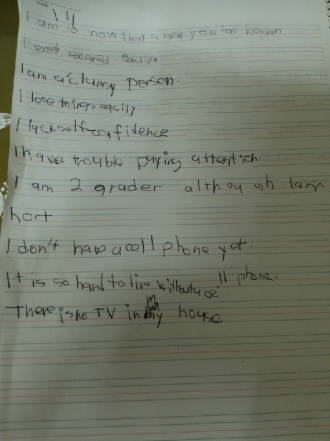 I am is now that a man you has known
get scared easily
I am a clumsy person.
I lose things easily
I lack self confidence
I have trouble paying attention.
I am 2 grader although I am
hort
I don't have a cell phone yet.
It is so hard to live without a ce ll phone.
There is no TV in my house